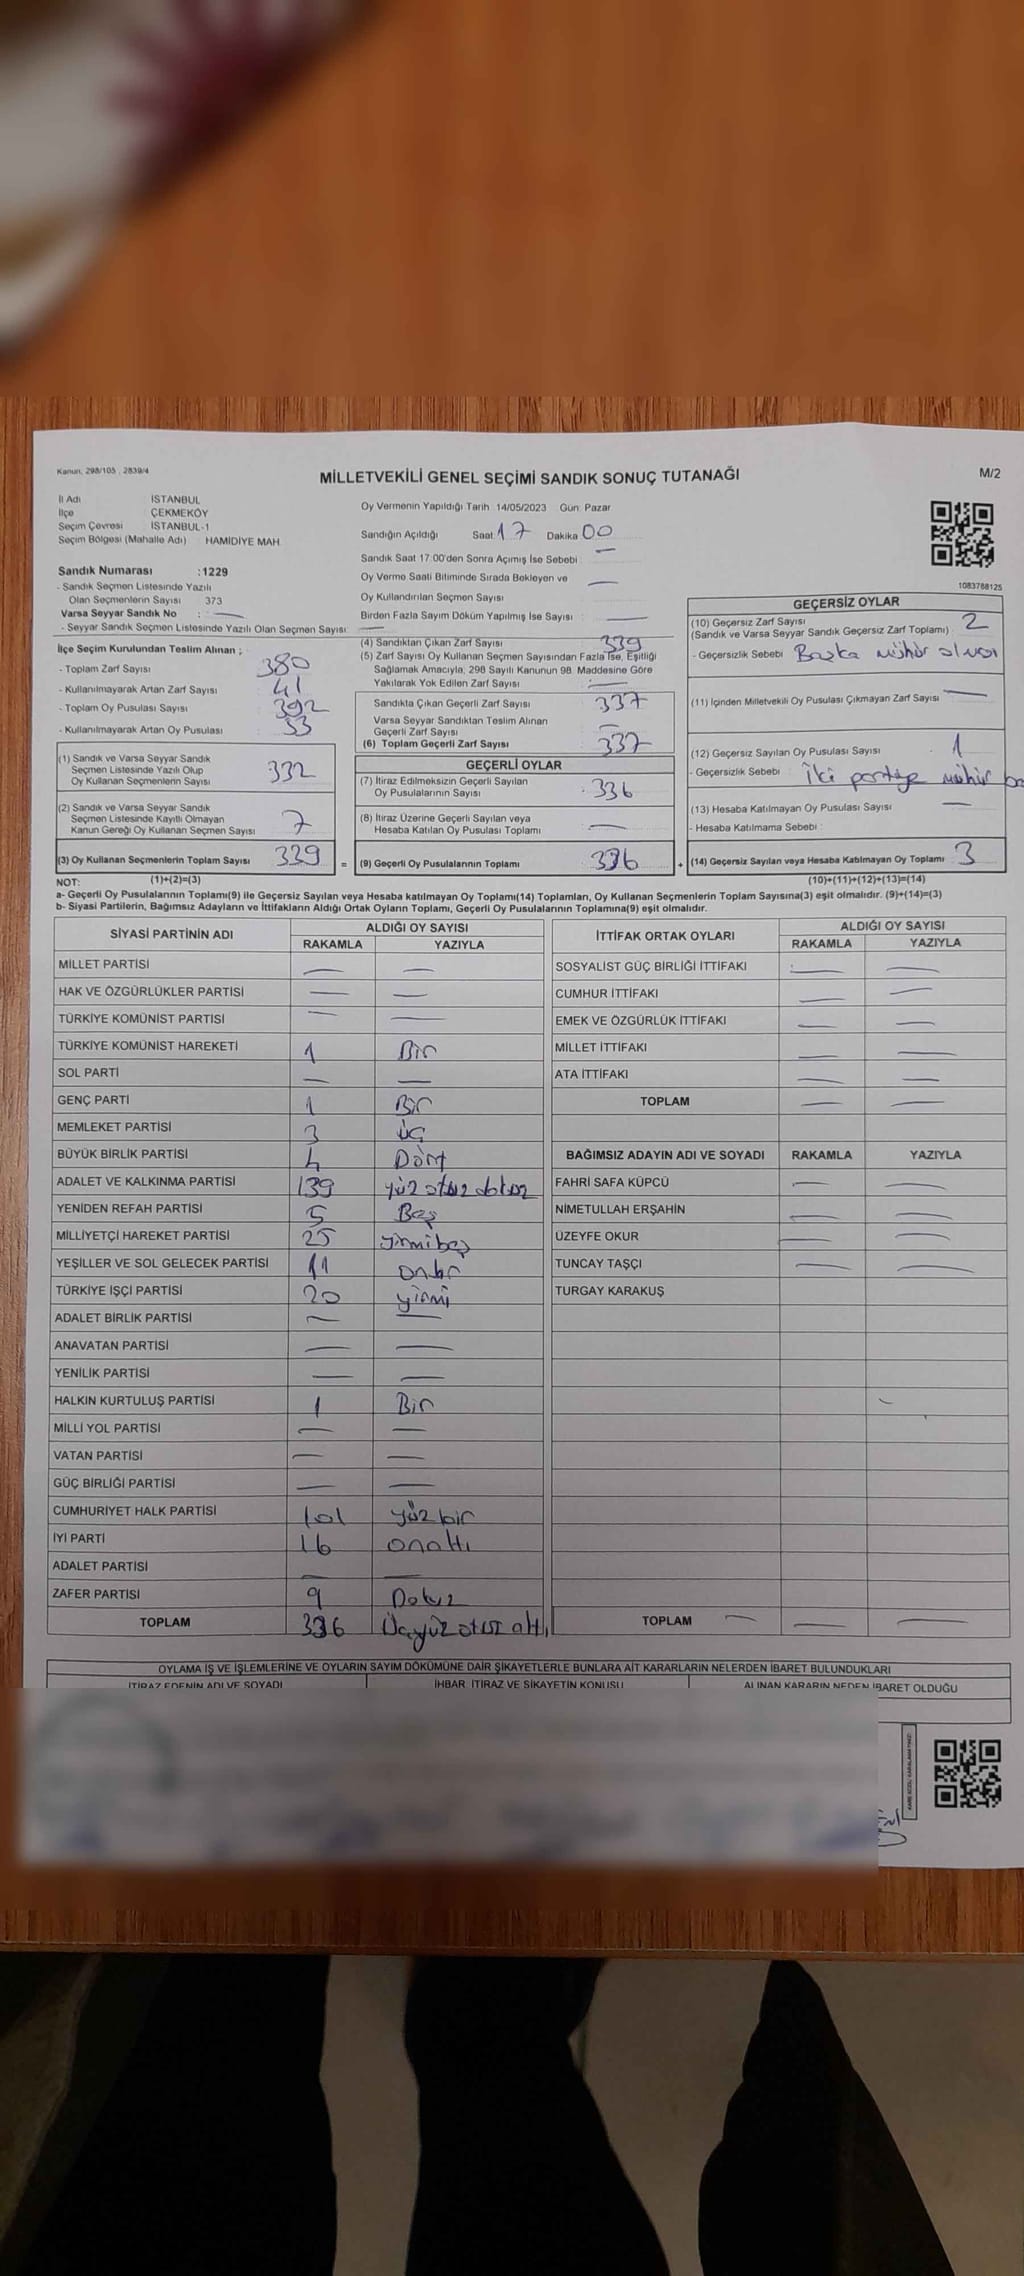 Kanun: 298/105 , 2839/4
MİLLETVEKİLİ GENEL SEÇİMİ SANDIK SONUÇ TUTANAĞI
M/2
İl Adı : İSTANBUL
İlçe : ÇEKMEKÖY
Seçim Çevresi : İSTANBUL-1
Seçim Bölgesi (Mahalle Adı) : HAMİDİYE MAH.
Sandık Numarası :1229
- Sandık Seçmen Listesinde Yazılı
Olan Seçmenlerin Sayısı : 373
Varsa Seyyar Sandık No : —
- Seyyar Sandık Seçmen Listesinde Yazılı Olan Seçmen Sayısı : —
İlçe Seçim Kurulundan Teslim Alınan ;
- Toplam Zarf Sayısı 380
- Kullanılmayarak Artan Zarf Sayısı 41
- Toplam Oy Pusulası Sayısı 392
- Kullanılmayarak Artan Oy Pusulası 53
(1) Sandık ve Varsa Seyyar Sandık
Seçmen Listesinde Yazılı Olup
Oy Kullanan Seçmenlerin Sayısı 332
(2) Sandık ve Varsa Seyyar Sandık
Seçmen Listesinde Kayıtlı Olmayan
Kanun Gereği Oy Kullanan Seçmen Sayısı 7
(3) Oy Kullanan Seçmenlerin Toplam Sayısı 339
(1)+(2)=(3)
Oy Vermenin Yapıldığı Tarih 14/05/2023 Gün: Pazar
Sandığın Açıldığı Saat 17 Dakika 00
Sandık Saat 17:00'den Sonra Açımış İse Sebebi : —
Oy Verme Saati Bitiminde Sırada Bekleyen ve —
Oy Kullandırılan Seçmen Sayısı
Birden Fazla Sayım Döküm Yapılmış İse Sayısı : —
(4) Sandıktan Çıkan Zarf Sayısı 339
(5) Zarf Sayısı Oy Kullanan Seçmen Sayısından Fazla İse, Eşitliği
Sağlamak Amacıyla, 298 Sayılı Kanunun 98. Maddesine Göre
Yakılarak Yok Edilen Zarf Sayısı : —
Sandıkta Çıkan Geçerli Zarf Sayısı 337
Varsa Seyyar Sandıktan Teslim Alınan
Geçerli Zarf Sayısı —
(6) Toplam Geçerli Zarf Sayısı 337
GEÇERLİ OYLAR
(7) İtiraz Edilmeksizin Geçerli Sayılan
Oy Pusulalarının Sayısı : 336
(8) İtiraz Üzerine Geçerli Sayılan veya
Hesaba Katılan Oy Pusulası Toplamı —
= (9) Geçerli Oy Pusulalarının Toplamı : 336
1083788125
GEÇERSİZ OYLAR
(10) Geçersiz Zarf Sayısı 2
(Sandık ve Varsa Seyyar Sandık Geçersiz Zarf Toplamı) :
- Geçersizlik Sebebi Başka mühür olması
(11) İçinden Milletvekili Oy Pusulası Çıkmayan Zarf Sayısı : —
(12) Geçersiz Sayılan Oy Pusulası Sayısı : 1
- Geçersizlik Sebebi : İki partiye mühür
(13) Hesaba Katılmayan Oy Pusulası Sayısı : —
- Hesaba Katılmama Sebebi :
+ (14) Geçersiz Sayılan veya Hesaba Katılmayan Oy Toplamı : 3
(10)+(11)+(12)+(13)=(14)
NOT:
a- Geçerli Oy Pusulalarının Toplamı(9) ile Geçersiz Sayılan veya Hesaba katılmayan Oy Toplamı(14) Toplamları, Oy Kullanan Seçmenlerin Toplam Sayısına(3) eşit olmalıdır. (9)+(14)=(3)
b- Siyasi Partilerin, Bağımsız Adayların ve İttifakların Aldığı Ortak Oyların Toplamı, Geçerli Oy Pusulalarının Toplamına(9) eşit olmalıdır.
SİYASİ PARTİNİN ADI ALDIĞI OY SAYISI
RAKAMLA YAZIYLA
MİLLET PARTİSİ — —
HAK VE ÖZGÜRLÜKLER PARTİSİ — —
TÜRKİYE KOMÜNİST PARTİSİ — —
TÜRKİYE KOMÜNİST HAREKETİ 1 Bir
SOL PARTİ — —
GENÇ PARTİ 1 Bir
MEMLEKET PARTİSİ 3 üç
BÜYÜK BİRLİK PARTİSİ 4 Dört
ADALET VE KALKINMA PARTİSİ 139 yüz otuz dokuz
YENİDEN REFAH PARTİSİ 5 Beş
MİLLİYETÇİ HAREKET PARTİSİ 25 yirmibeş
YEŞİLLER VE SOL GELECEK PARTİSİ 11 onbir
TÜRKİYE İŞÇİ PARTİSİ 20 yirmi
ADALET BİRLİK PARTİSİ — —
ANAVATAN PARTİSİ — —
YENİLİK PARTİSİ — —
HALKIN KURTULUŞ PARTİSİ 1 Bir
MİLLİ YOL PARTİSİ — —
VATAN PARTİSİ — —
GÜÇ BİRLİĞİ PARTİSİ — —
CUMHURİYET HALK PARTİSİ 101 yüz bir
İYİ PARTİ 16 onaltı
ADALET PARTİSİ — —
ZAFER PARTİSİ 9 Dokuz
TOPLAM 336 Üçyüz otuz altı
İTTİFAK ORTAK OYLARI ALDIĞI OY SAYISI
RAKAMLA YAZIYLA
SOSYALİST GÜÇ BİRLİĞİ İTTİFAKI — —
CUMHUR İTTİFAKI — —
EMEK VE ÖZGÜRLÜK İTTİFAKI — —
MİLLET İTTİFAKI — —
ATA İTTİFAKI — —
TOPLAM — —
BAĞIMSIZ ADAYIN ADI VE SOYADI RAKAMLA YAZIYLA
FAHRİ SAFA KÜPCÜ — —
NİMETULLAH ERŞAHİN — —
ÜZEYFE OKUR — —
TUNCAY TAŞÇI — —
TURGAY KARAKUŞ
TOPLAM — — —
OYLAMA İŞ VE İŞLEMLERİNE VE OYLARIN SAYIM DÖKÜMÜNE DAİR ŞİKAYETLERLE BUNLARA AİT KARARLARIN NELERDEN İBARET BULUNDUKLARI
İTİRAZ EDENİN ADI VE SOYADI İHBAR, İTİRAZ VE ŞİKAYETİN KONUSU ALINAN KARARIN NEDEN İBARET OLDUĞU